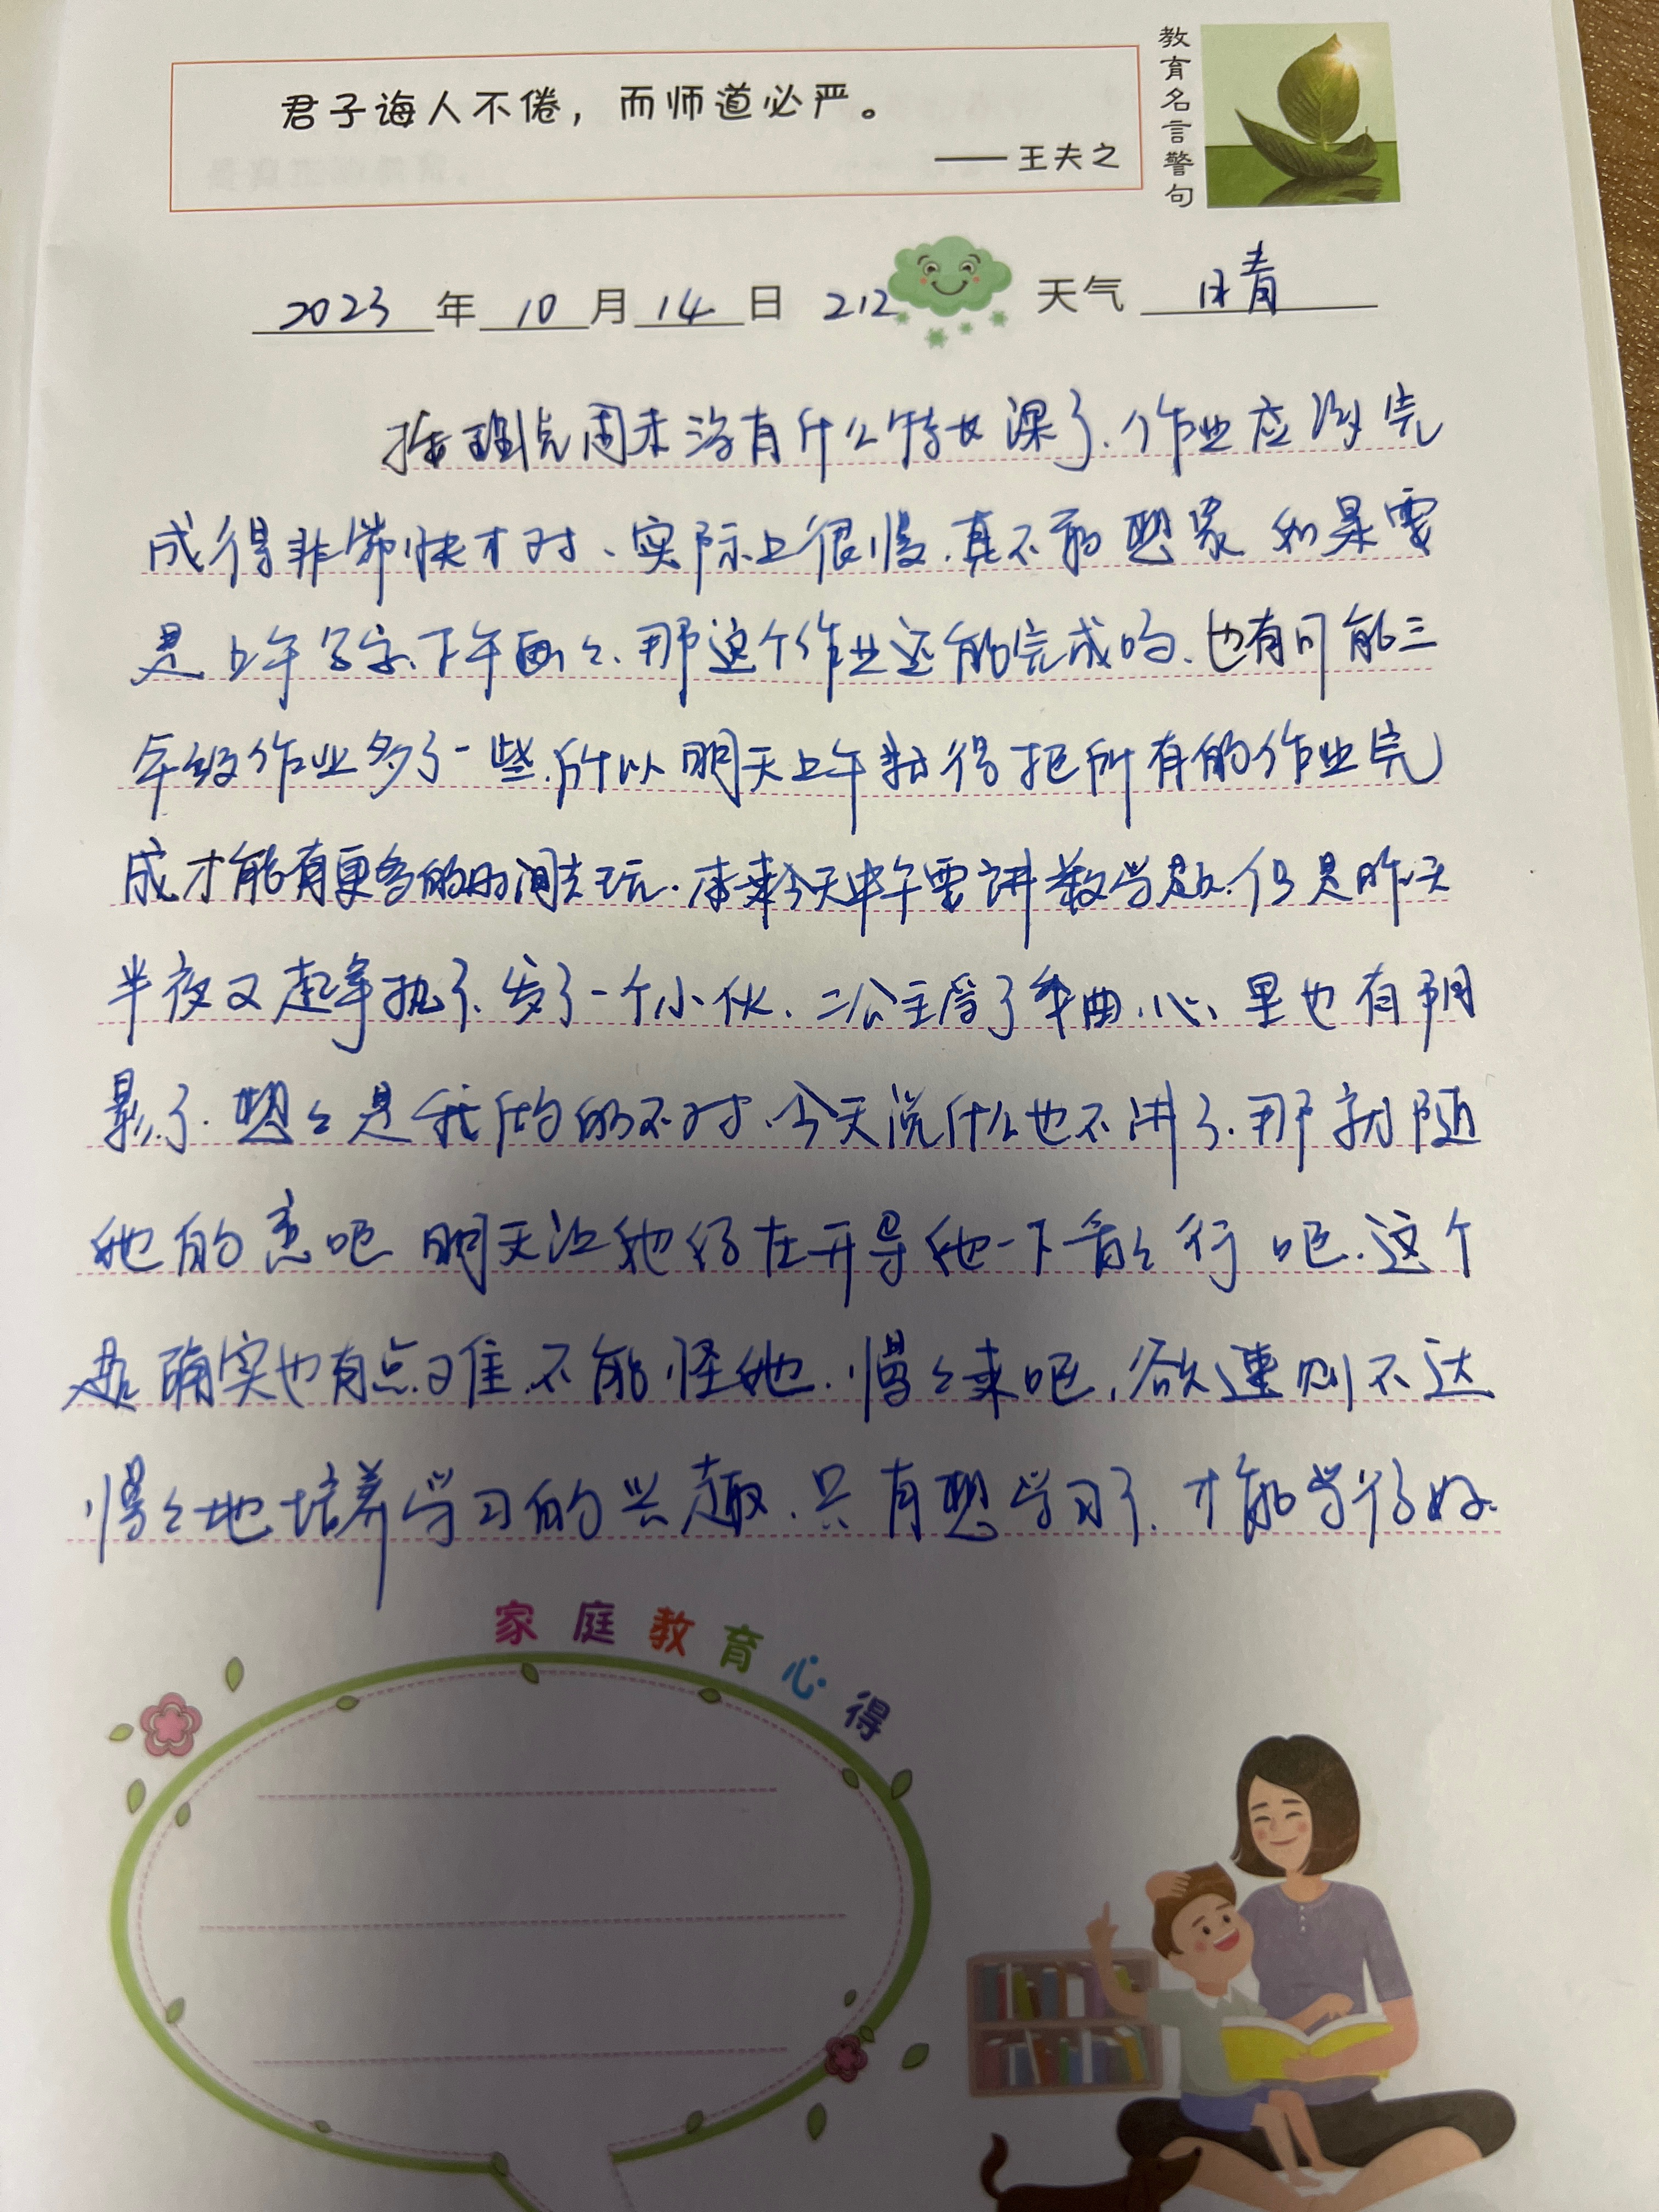 君子诲人不倦，而师道必严。
——王夫之
教育名言警句
2023年10月14日 212 天气 晴
按理说周末没有什么特长课了.作业应该完
成得非常快才对、实际上很慢.真不敢想象 如果要
是上午写字、下午画画、那这个作业还能完成吗、也有可能三
年级作业多了一些.所以明天上午就得把所有的作业完
成才能有更多的时间去玩.本来今天中午要讲数学题.但是昨天
半夜又起争执了、发了一个小伙、二公主受了委曲、心里也有阴
影了.想想是我做的不对、今天说什么也不讲了.那就随
她的意吧 明天让她好在开导她一下看看行吧.这个
题确实也有点难.不能怪她.慢慢来吧,欲速则不达
慢慢地培养学习的兴趣.只有想学习了.才能学得好.
家庭教育心得